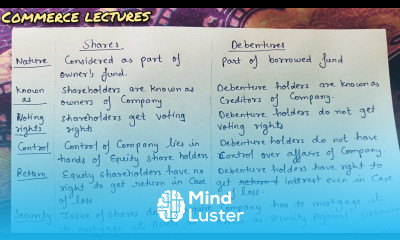 COMMERCE LECTURES
Shares Debentures
Nature Considered as part of Part of borrowed fund
owner's fund.
Known Shareholders are known as Debenture holders are known as
as owners of Company Creditors of Company.
Voting Shareholders get voting Debenture holders do not get
rights rights voting rights
Control Control of Company lies in Debenture holders do not have
hands of Equity share holders Control over affairs of Company.
Return Equity shareholders have no Debenture holders have right to
right to get return in Case get return interest even in Case
of loss of loss.
Security Issue of shares Company has to mortgage it
Mind
Luster